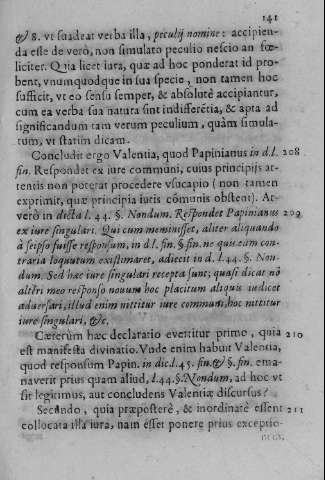 141
& 8. vt suadeat verba illa, peculij nomine: accipien-
da esse de verò, non simulato peculio nescio an fœ-
liciter. Quia licet iura, quæ ad hoc ponderat id pro-
bent, vnumquodque in sua specie, non tamen hoc
sufficit, vt eo sensu semper, & absolutè accipiantur,
cum ea verba sua natura sint indifferẽtia, & apta ad
significandum tam verum peculium, quàm simula-
tum, vt statim dicam.
Concludit ergo Valentia, quod Papinianus in d.l. 208
fin. Respondet ex iure communi, cuius principijs at-
tentis non poterat procedere vsucapio (non tamen
exprimit, quæ principia iuris cõmunis obstent). At-
verò in dicta l. 44. §. Nondum. Respondet Papinianus 209
ex iure singulari. Qui cum meminisset, aliter aliquando
à seipso fuisse responsum, in d.l. fin. §. fin. ne quis eum con-
traria loquutum existimaret, adiecit in d.l. 44. §. Non-
dum. Sed hæc iure singulari recepta sunt; quasi dicat nõ
altẽri meo responso nouum hoc placitum aliquis iudicet
aduersari, illud enim nittitur iure communi, hoc nittitur
iure singulari, &c.
Cæterùm hæc declaratio euertitur primo, quia 210
est manifesta diuinatio. Vnde enim habuit Valentia,
quod responsum Papin. in dic.l. 45. fin. & §. fin. ema-
nauerit prius quam aliud, l. 44. §. Nondum, ad hoc vt
sit legitimus, aut concludens Valentiæ discursus?
Secundo, quia præposterè, & inordinatè essent 211
collocata illa iura, nam esset ponere prius exceptio-